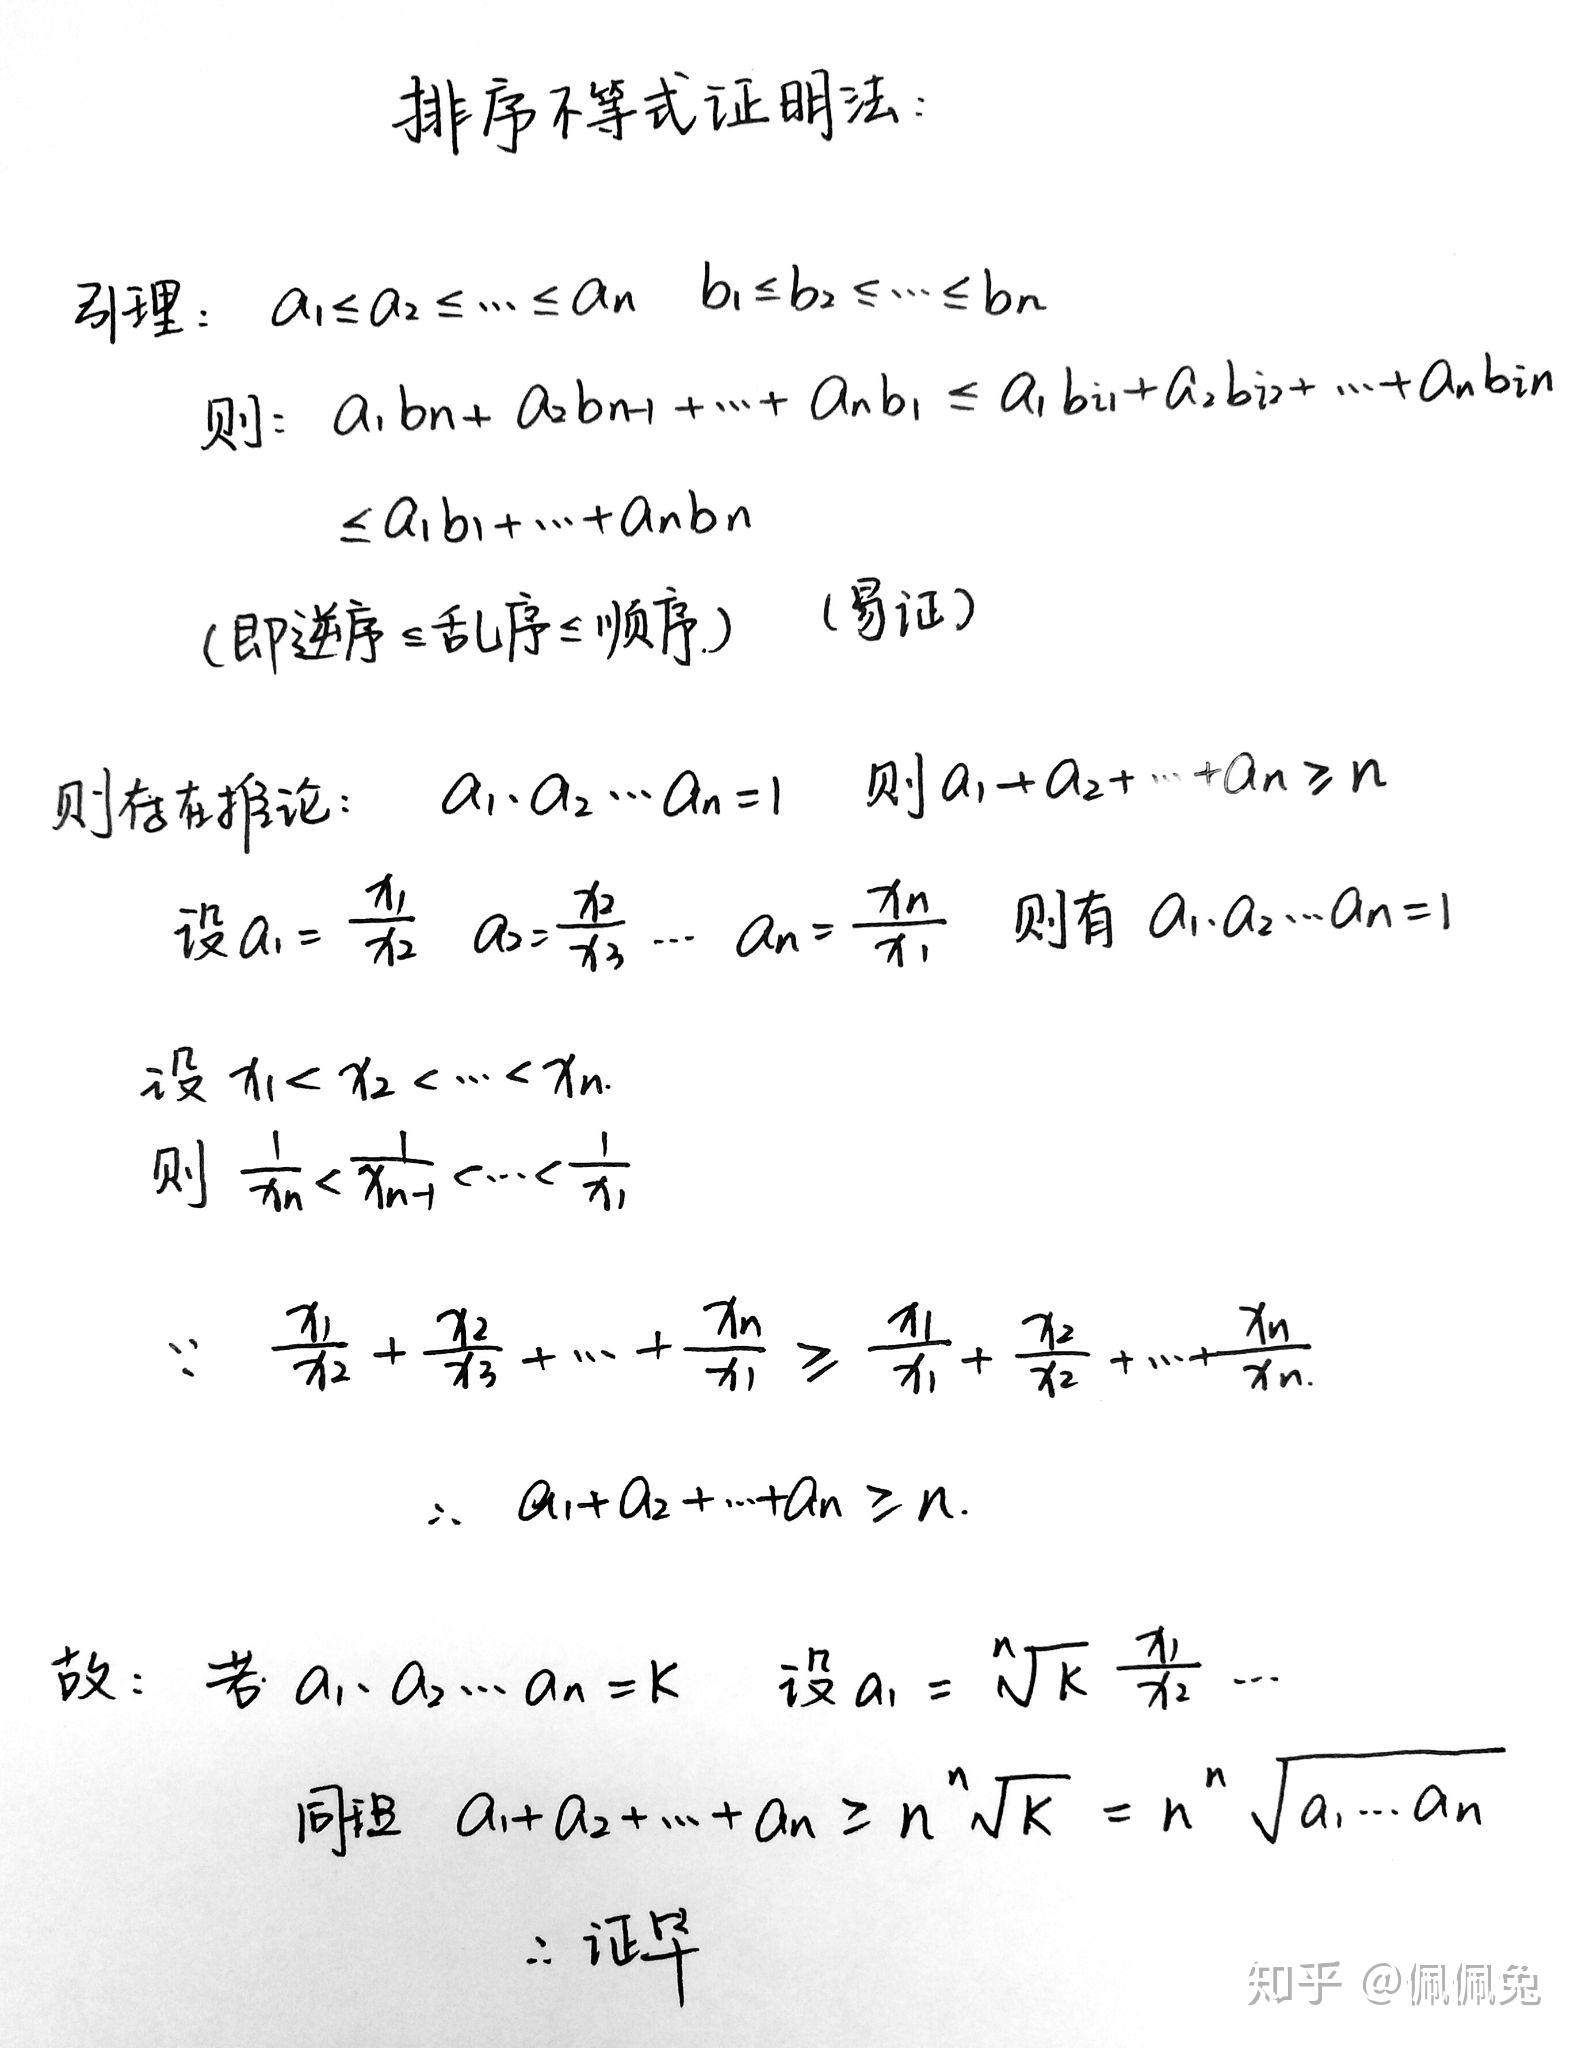 排序不等式证明法:
引理: a₁≤a₂≤…≤aₙ b₁≤b₂≤…≤bₙ
则: a₁bₙ+a₂bₙ₋₁+…+aₙb₁≤a₁bᵢ₁+a₂bᵢ₂+…+aₙbᵢₙ
≤a₁b₁+…+aₙbₙ
(即逆序≤乱序≤顺序.) (易证)
则存在推论: a₁·a₂…aₙ=1 则a₁+a₂+…+aₙ≥n
设a₁=x₁/x₂ a₂=x₂/x₃ … aₙ=xₙ/x₁ 则有 a₁·a₂…aₙ=1
设 x₁<x₂<…<xₙ.
则 1/xₙ<1/xₙ₋₁<…<1/x₁
∵ x₁/x₂+x₂/x₃+…+xₙ/x₁≥x₁/x₁+x₂/x₂+…+xₙ/xₙ.
∴ a₁+a₂+…+aₙ≥n.
故: 若 a₁·a₂…aₙ=K 设a₁=ⁿ√K x₁/x₂ …
同理 a₁+a₂+…+aₙ≥nⁿ√K=nⁿ√(a₁…aₙ)
∴证毕
知乎 @佩佩兔